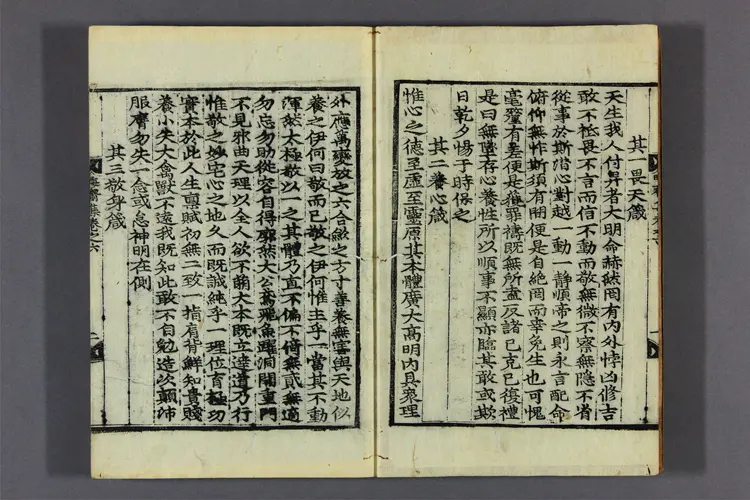 其一畏天箴
天生我人付畀者大明命赫然罔有內外悖凶修吉
敢不祗畏不言而信不動而敬無微不察無隱不省
從事於斯潛心對越一動一靜順帝之則永言配命
俯仰無怍斯須有間便是自絶罔而幸免生也可愧
毫釐有差便是獲罪禱旣無所盍反諸己克己復禮
是曰無墮存心養性所以順事不顯亦臨其敢或欺
日乾夕惕于時保之
其二養心箴
惟心之德至虛至靈原其本體廣大高明內具衆理
外應萬變放之六合斂之方寸善養無害與天地似
養之伊何曰敬而已敬之伊何惟主乎一當其不動
渾然太極敬以一之其體乃直不偏不倚無貳無適
勿忘勿助從容自得廓然大公鳶飛魚躍洞開重門
不見邪曲天理以全人欲不萌大本旣立達道乃行
惟敬之妙宅心之地久而旣誠純乎一理位育極功
實本於此人生禀賦初無二致一指肩背鮮知貴賤
養小失大禽獸不遠我旣知此敢不自勉造次顚沛
服膺勿失一念或怠神明在側
其三敬身箴